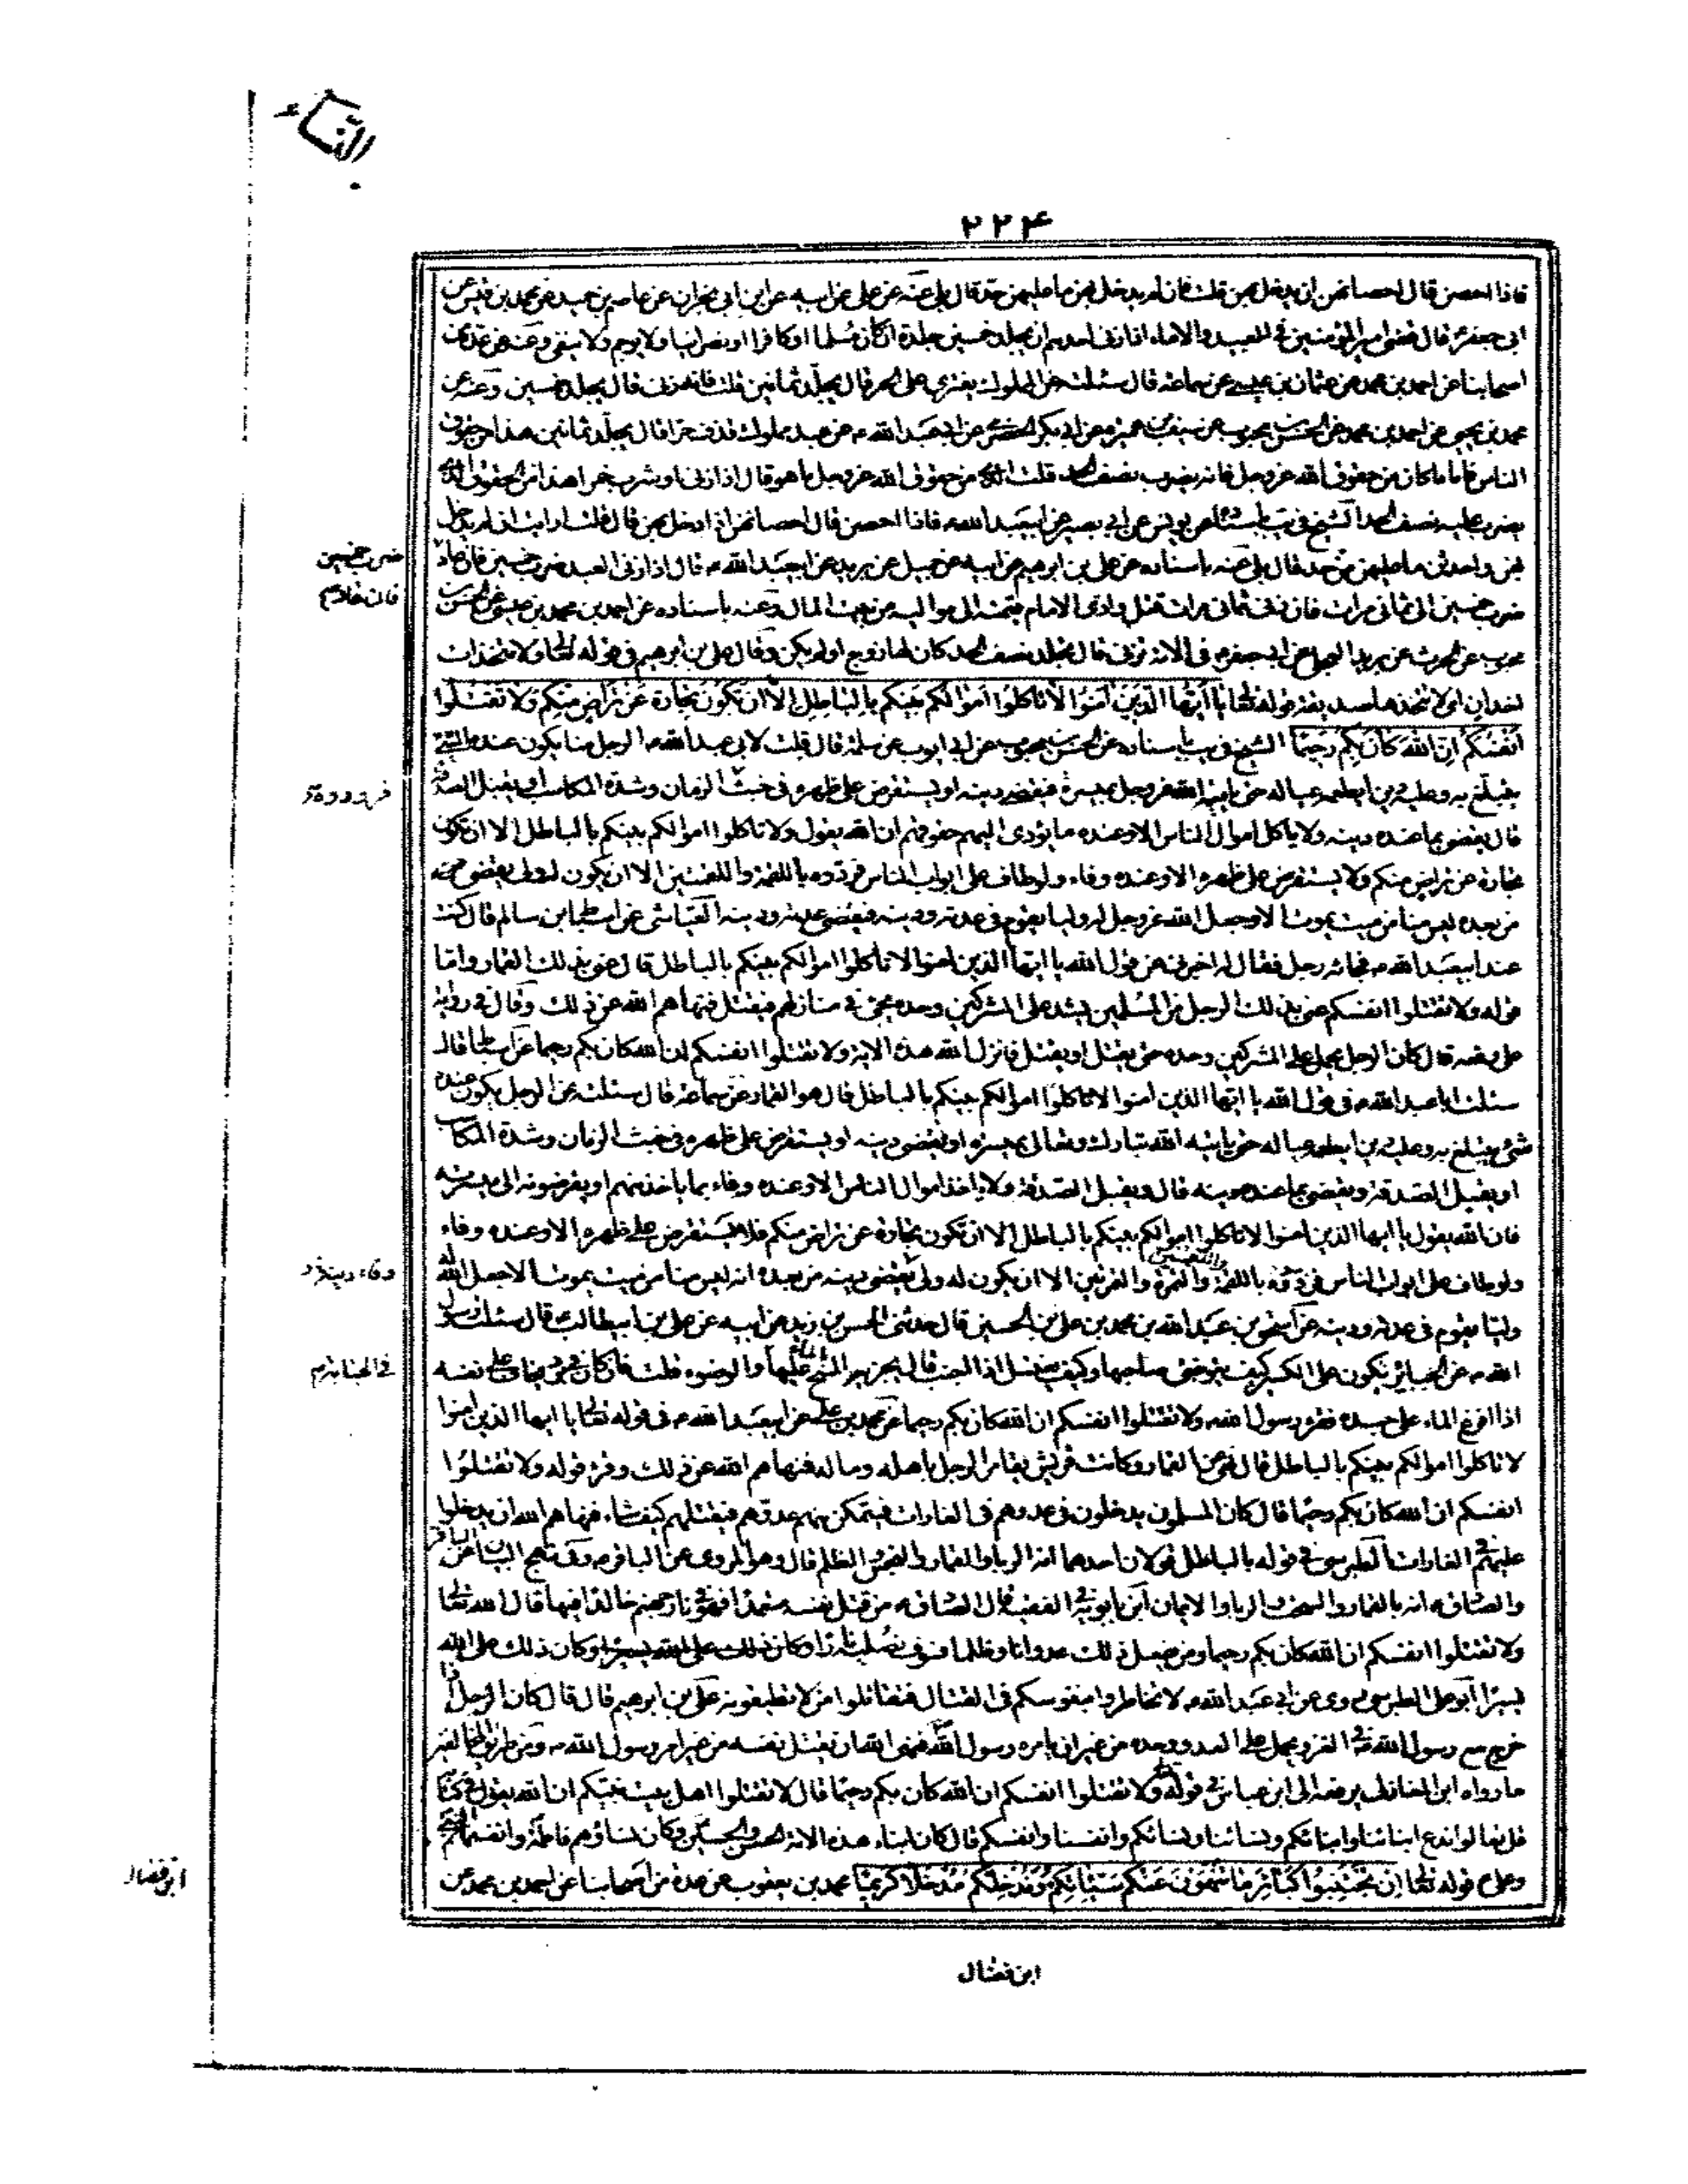 النساء
۲۲۴
فاذا احصن قال احصانهن ان يدخل بهن قلت فان لم يدخل بهن ما عليهن حد قال بلى عنه عن علي عن ابيه عن ابن ابي نجران عن عاصم بن حميد عن محمد بن قيس عن
ابي جعفر ع قال قضى امير المؤمنين في العبيد والاماء اذا زنى احدهم ان يجلد خمسين جلدة ان كان مسلما او كافرا او نصرانيا ولا يرجم ولا ينفى وعنه عن عدة من
اصحابنا عن احمد بن محمد عن عثمان بن عيسى عن سماعة قال سئلت عن المملوك يفترى على الحر قال يجلد ثمانين قلت فانه زنى قال يجلد خمسين وعنه عن
محمد بن يحيى عن احمد بن محمد عن الحسن بن محبوب عن سيف بن عميرة عن ابي بكر الحضرمي عن ابي عبد الله ع عن عبد مملوك قذف حرا قال يجلد ثمانين هذا من حقوق
الناس فاما ما كان من حقوق الله عز وجل فانه يضرب نصف الحد قلت الذي من حقوق الله عز وجل ما هو قال اذا زنى او شرب خمرا هذا من الحقوق التي
يضرب عليه نصف الحد الشيخ في يب باسناده عن يونس عن ابي بصير عن ابي عبد الله ع فاذا احصن قال احصانهن اذا دخل بهن قال قلت ارايت ان لم يدخل
بهن واحدثن ما عليهن من حد قال بلى عنه باسناده عن علي بن ابرهيم عن ابيه عن جميل عن بريد عن ابي عبد الله ع قال اذا زنى العبد ضرب خمسين فان عاد
ضرب خمسين
ضرب خمسين الى ثماني مرات فان زنى ثماني مرات قتل وادى الامام قيمته الى مواليه من بيت المال وعنه باسناده عن احمد بن محمد بن عيسى عن الحسن بن
فان عاد
محبوب عن الحرث عن بريد العجلي عن ابي جعفر ع في الامة تزنى قال تجلد نصف الحد كان لها زوج او لم يكن وقال علي بن ابرهيم في قوله تعالى ولا متخذات
اخدان اي لا تتخذها صديقة قوله تعالى يا ايها الذين امنوا لا تاكلوا اموالكم بينكم بالباطل الا ان تكون تجارة عن تراض منكم ولا تقتلوا
انفسكم ان الله كان بكم رحيما الشيخ في يب باسناده عن الحسن بن محبوب عن ابي ايوب عن سلمة قال قلت لابي عبد الله ع الرجل منا يكون عنده الشيء
يتبلغ به وعليه دين ايطعمه عياله حتى ياتيه الله عز وجل بميسرة فيقضى دينه او يستقرض على ظهره في خبث الزمان وشدة المكاسب او يقبل الصدقة
قال يقضى بما عنده دينه ولا ياكل اموال الناس الا وعنده ما يؤدى اليهم حقوقهم ان الله يقول ولا تاكلوا اموالكم بينكم بالباطل الا ان تكون
تجارة عن تراض منكم ولا يستقرض على ظهره الا وعنده وفاء ولو طاف على ابواب الناس فردوه باللقمة واللقمتين الا ان يكون له ولى يقضى عنه
من بعده ليس منا من ميت يموت الا وجعل الله عز وجل له وليا يقوم في عدته ودينه فيقضى عدته ودينه العياشي عن اسباط بن سالم قال كنت
عند ابي عبد الله ع فجائه رجل فقال له اخبرني عن قول الله يا ايها الذين امنوا لا تاكلوا اموالكم بينكم بالباطل قال عنى بذلك القمار واما
قوله ولا تقتلوا انفسكم عنى بذلك الرجل من المسلمين يشد على المشركين وحده يجئ في منازلهم فيقتل فنهاهم الله عن ذلك وقال في رواية
على بضعة قال كان الرجل يحمل على المشركين وحده حتى يقتل او يقتل فانزل الله هذه الاية ولا تقتلوا انفسكم ان الله كان بكم رحيما عن اسباط قال
سئلت ابا عبد الله ع في قول الله يا ايها الذين امنوا لا تاكلوا اموالكم بينكم بالباطل قال هو القمار عن سماعة قال سئلته عن الرجل يكون عنده
شئ يتبلغ به وعليه دين ايطعمه عياله حتى ياتيه الله تبارك وتعالى بميسرة او يقضى دينه او يستقرض على ظهره في خبث الزمان وشدة المكاسب
او يقبل الصدقة ويقضى بما عنده دينه قال ويقبل الصدقة ولا ياخذ اموال الناس الا وعنده وفاء بما ياخذ منهم او يقرضونه الى ميسرته
فان الله يقول يا ايها الذين امنوا لا تاكلوا اموالكم بينكم بالباطل الا ان تكون تجارة عن تراض منكم فلا يستقرض على ظهره الا وعنده وفاء
ولو طاف على ابواب الناس فردوه باللقمة واللقمتين والتمرة والتمرتين الا ان يكون له ولى يقضى دينه من بعده انه ليس منا من ميت يموت الا جعل الله له
وليا يقوم في عدته ودينه عن اسحق بن عبد الله بن محمد بن علي بن الحسين قال حدثني الحسن بن زيد عن ابيه عن علي بن ابيطالب ع قال سئلت رسول
الله ص عن الجبائر تكون على الكسير كيف يتوضى صاحبها وكيف يغتسل اذا اجنب قال يجزيه المسح بالماء عليها والوضوء قلت فان كان في برد يخاف على نفسه
في الجنابة
اذا افرغ الماء على جسده فقرء رسول الله ص ولا تقتلوا انفسكم ان الله كان بكم رحيما عن محمد بن علي عن ابي عبد الله ع في قوله تعالى يا ايها الذين امنوا
لا تاكلوا اموالكم بينكم بالباطل قال نهى عن القمار وكانت قريش يقامر الرجل باهله وماله فنهاهم الله عن ذلك وقرء قوله ولا تقتلوا
انفسكم ان الله كان بكم رحيما قال كان المسلمون يدخلون في عدوهم في الغارات فيتمكن منهم عدوهم فيقتلهم كيف شاء فنهاهم الله ان يدخلوا
عليهم في الغارات الطبرسي في قوله بالباطل قولان احدهما انه الربا والقمار والبخس والظلم قال وهو المروى عن الباقر ع وفي نهج البيان عن الباقر
والصادق ع انه بالقمار والسحت والربا والايمان ابن بابويه في الفقيه قال الصادق ع من قتل نفسه متعمدا فهو في نار جهنم خالدا فيها قال الله تعالى
ولا تقتلوا انفسكم ان الله كان بكم رحيما ومن يفعل ذلك عدوانا وظلما فسوف نصليه نارا وكان ذلك على الله يسيرا وكان ذلك على الله
يسيرا ابو علي الطبرسي روى عن ابي عبد الله ع لا تخاطروا بنفوسكم في القتال فتقاتلوا من لا تطيقونه علي بن ابرهيم قال قال كان الرجل اذا
خرج مع رسول الله ص في الغزو يحمل على العدو وحده من غير ان يامره رسول الله ص فنهى الله ان يقتل نفسه من غير امر رسول الله ص ومن طريق المخالفين
ما رواه ابن المغازلي يرفعه الى ابن عباس في قوله تعالى ولا تقتلوا انفسكم ان الله كان بكم رحيما قال لا تقتلوا اهل بيت نبيكم ان الله يقول في كتابه
قل تعالوا ندع ابنائنا وابنائكم ونسائنا ونسائكم وانفسنا وانفسكم قال كان ابناء هذه الامة الحسن والحسين وكان نساؤهم فاطمة وانفسهم النبي
وعلي ع قوله تعالى ان تجتنبوا كبائر ما تنهون عنه نكفر عنكم سيئاتكم وندخلكم مدخلا كريما محمد بن يعقوب عن عدة من اصحابنا عن احمد بن محمد عن
ابن فضال
ابن فضال